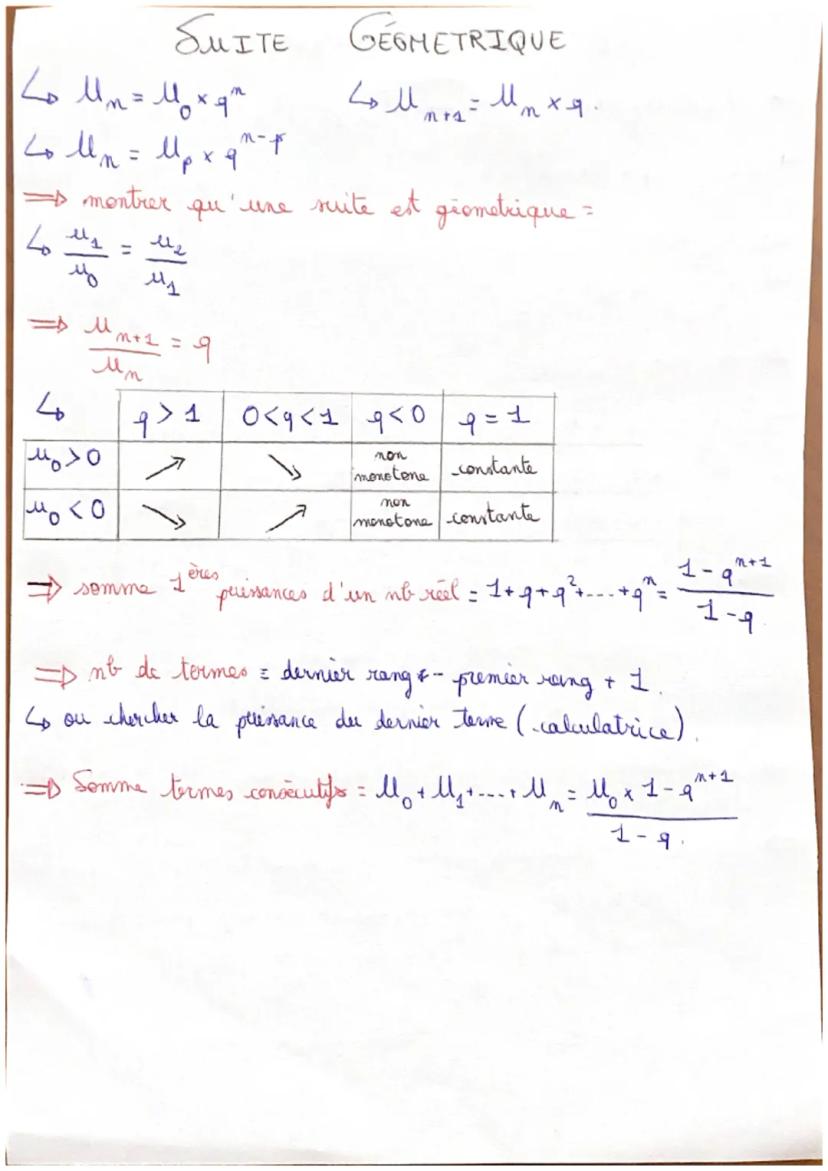 SUITE GÉOMETRIQUE
↳ Un = U0 × q^n ↳ Un+1 = Un × q.
↳ Un = Up × q^n-p
⇒ montrer qu'une suite est géometrique =
↳ u1/u0 = u2/u1
⇒ un+1/un = q
↳ q > 1 0<q<1 q<0 q = 1
u0 > 0 ↗ ↘ non monotone constante
u0 < 0 ↘ ↗ non monotone constante
⇒ somme 1ères puissances d'un nb réel = 1+q+q²+....+q^n = 1-q^n+1 / 1-q
⇒ nb de termes = dernier rang - premier rang + 1
↳ ou chercher la puissance du dernier terme (calculatrice).
⇒ Somme termes consécutifs = U0 + U1 +....+ Un = U0 × 1-q^n+1 / 1-q.